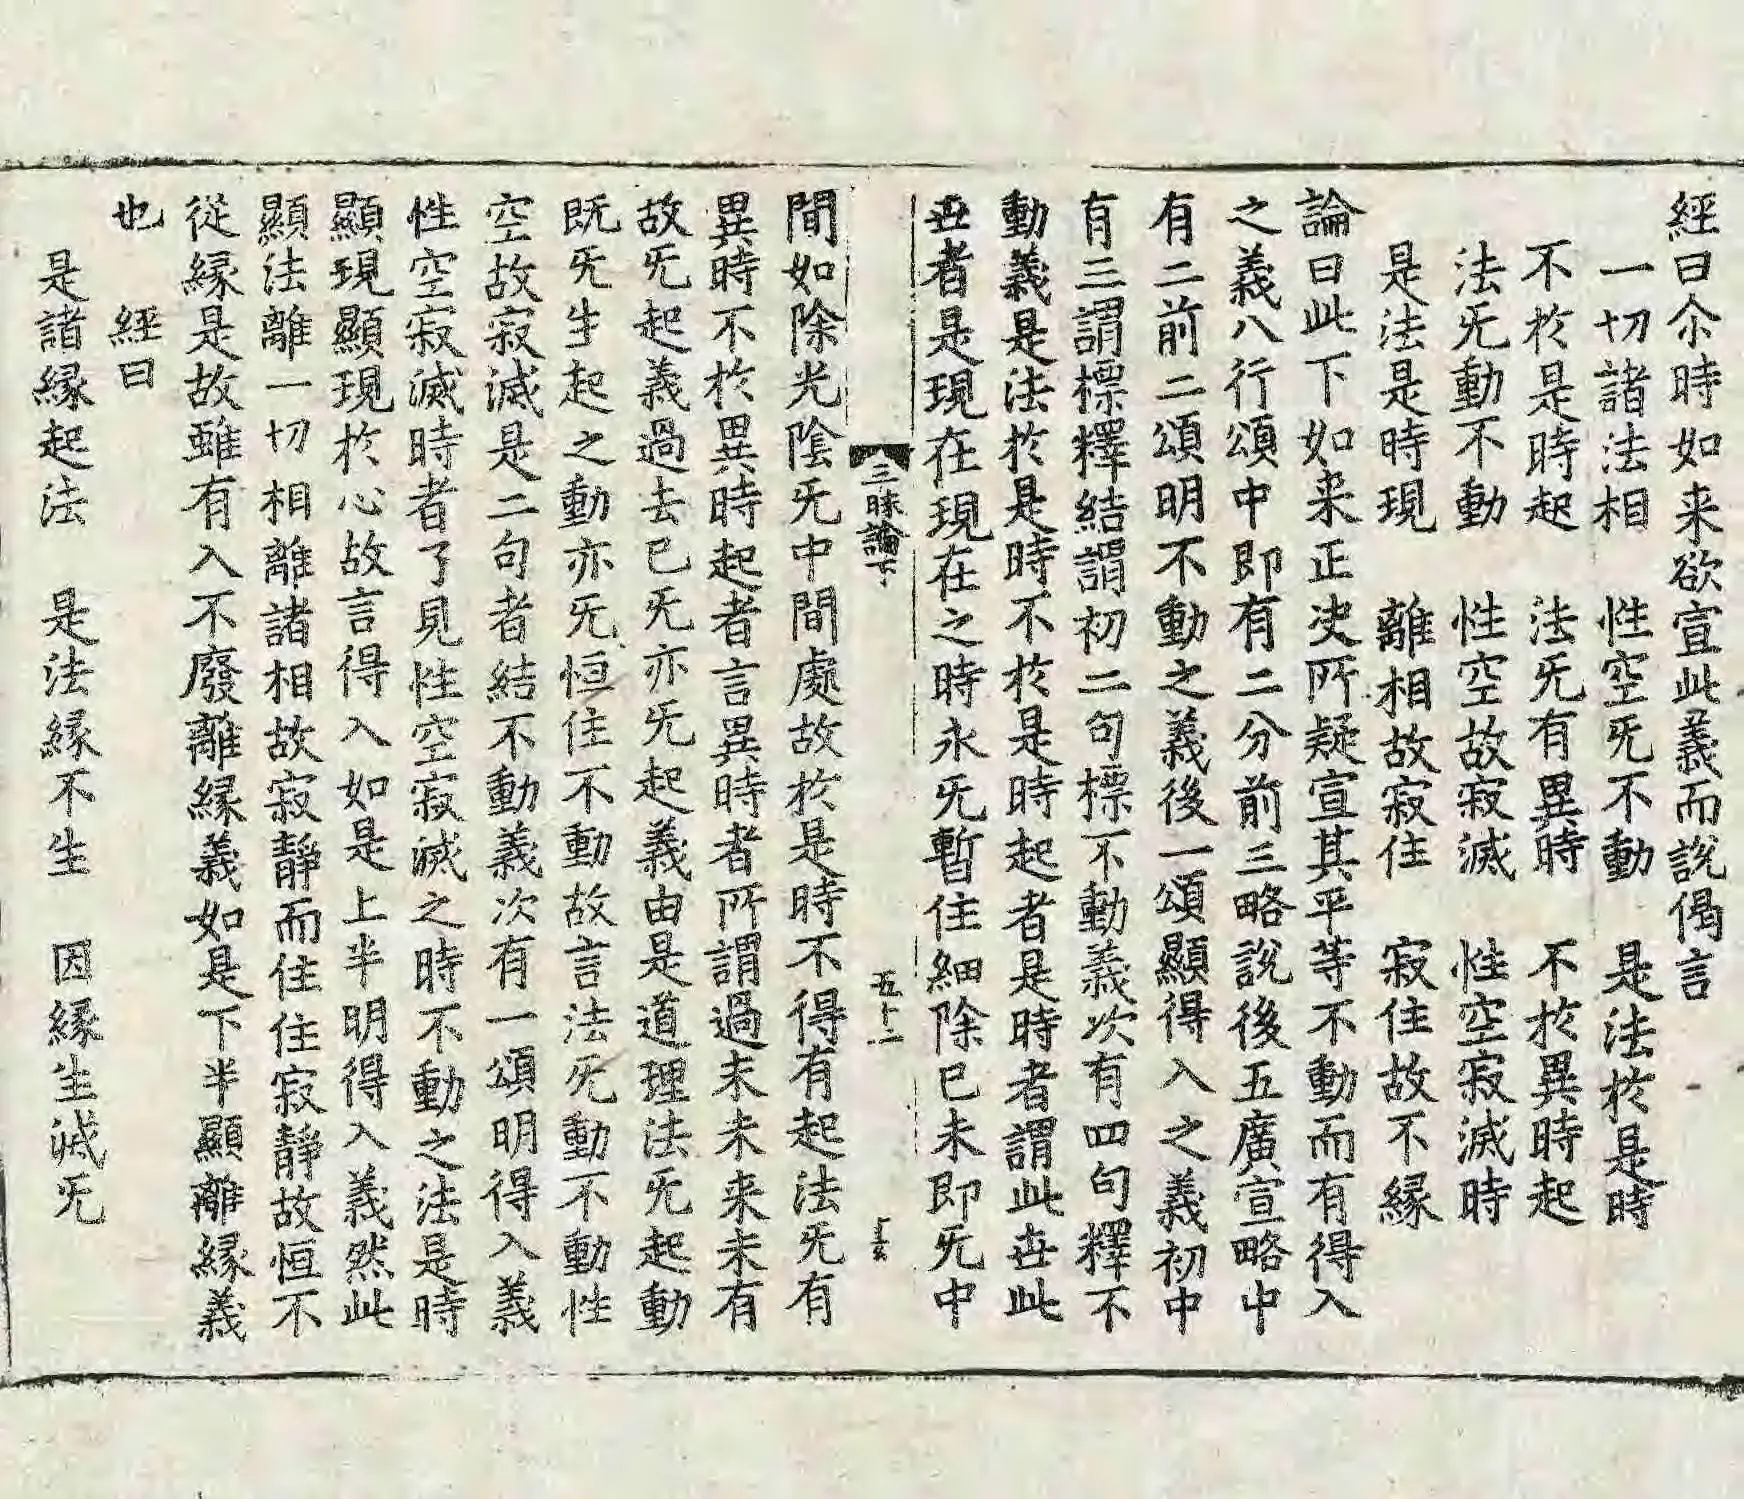 經曰尒時如来欲宣此義而說偈言
一切諸法相　性空旡不動　是法於是時
不於是時起　法旡有異時　不於異時起
法旡動不動　性空故寂滅　性空寂滅時
是法是時現　離相故寂住　寂住故不緣
論曰此下如来正决所疑宣其平等不動而有得入
之義八行頌中即有二分前三略說後五廣宣略中
有二前二頌明不動之義後一頌顯得入之義初中
有三謂標釋結謂初二句標不動義次有四句釋不
動義是法於是時不於是時起者是時者謂此世此
丗者是現在現在之時永旡暫住細除已未即旡中
三昧論下
五十一
間如除光陰旡中間處故於是時不得有起法旡有
異時不於異時起者言異時者所謂過未未来未有
故旡起義過去已旡亦旡起義由是道理法旡起動
既旡生起之動亦旡恒住不動故言法旡動不動性
空故寂滅是二句者結不動義次有一頌明得入義
性空寂滅時者了見性空寂滅之時不動之法是時
顯現顯現於心故言得入如是上半明得入義然此
顯法離一切相離諸相故寂靜而住住寂靜故恒不
從縁是故雖有入不廢離縁義如是下半顯離縁義
也　經曰
是諸縁起法　是法縁不生　因縁生滅旡